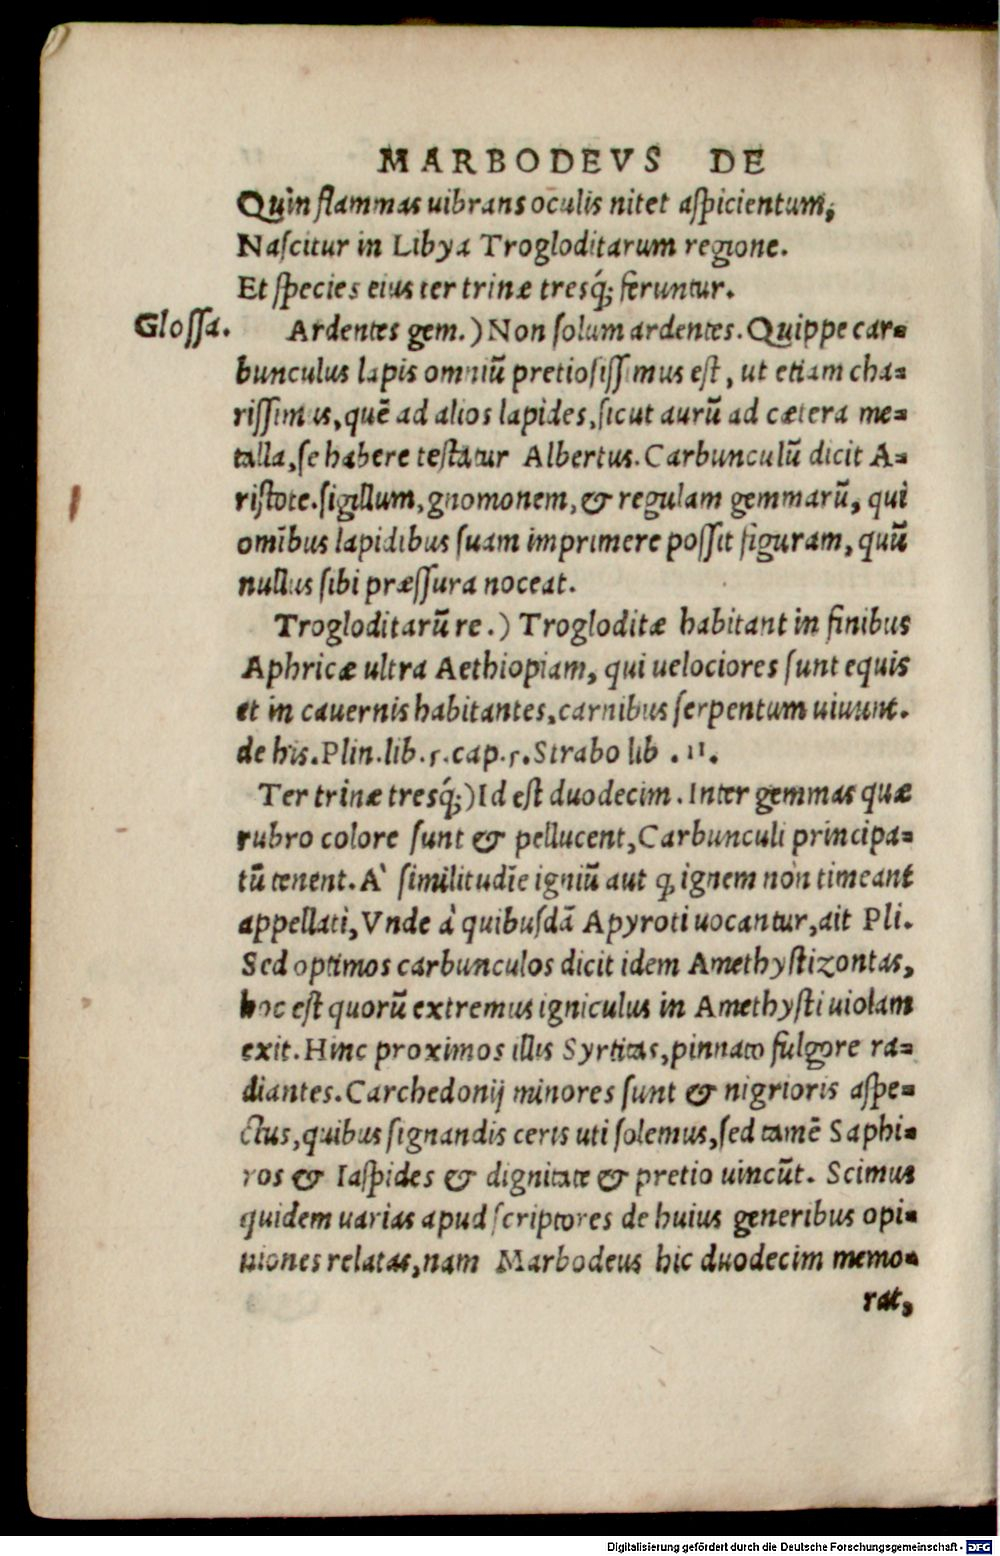 MARBODEVS DE
Quin flammas uibrans oculis nitet aſpicientum,
Naſcitur in Libya Trogloditarum regione.
Et ſpecies eius ter trinæ tresq́; feruntur.
Gloſſa.
Ardentes gem.) Non ſolum ardentes. Quippe car-
bunculus lapis omniũ pretioſiſſimus eſt, ut etiam cha-
riſſimus, quẽ ad alios lapides, ſicut aurũ ad cætera me-
talla, ſe habere teſtatur Albertus. Carbunculũ dicit A-
riſtote. ſigillum, gnomonem, & regulam gemmarũ, qui
omĩbus lapidibus ſuam imprimere poſſit figuram, quũ
nullus ſibi præſſura noceat.
Trogloditarũ re.) Trogloditæ habitant in finibus
Aphricæ ultra Aethiopiam, qui uelociores ſunt equis
et in cauernis habitantes, carnibus ſerpentum uiuunt.
de his. Plin. lib. 5. cap. 5. Strabo lib . 11.
Ter trinæ tresq́;) Id eſt duodecim. Inter gemmas quæ
rubro colore ſunt & pellucent, Carbunculi principa-
tũ tenent. A` ſimilitudĩe igniũ aut ꝙ ignem non timeant
appellati, Vnde à quibuſdã Apyroti uocantur, ait Pli.
Sed optimos carbunculos dicit idem Amethyſtizontas,
hoc eſt quorũ extremus igniculus in Amethyſti uiolam
exit. Hinc proximos illis Syrtitas, pinnato fulgore ra-
diantes. Carchedonij minores ſunt & nigrioris aſpe-
ctus, quibus ſignandis ceris uti ſolemus, ſed tamẽ Saphi-
ros & Iaſpides & dignitate & pretio uincũt. Scimus
quidem uarias apud ſcriptores de huius generibus opi-
niones relatas, nam Marbodeus hic duodecim memo-
rat,
Digitalisierung gefördert durch die Deutsche Forschungsgemeinschaft - DFG